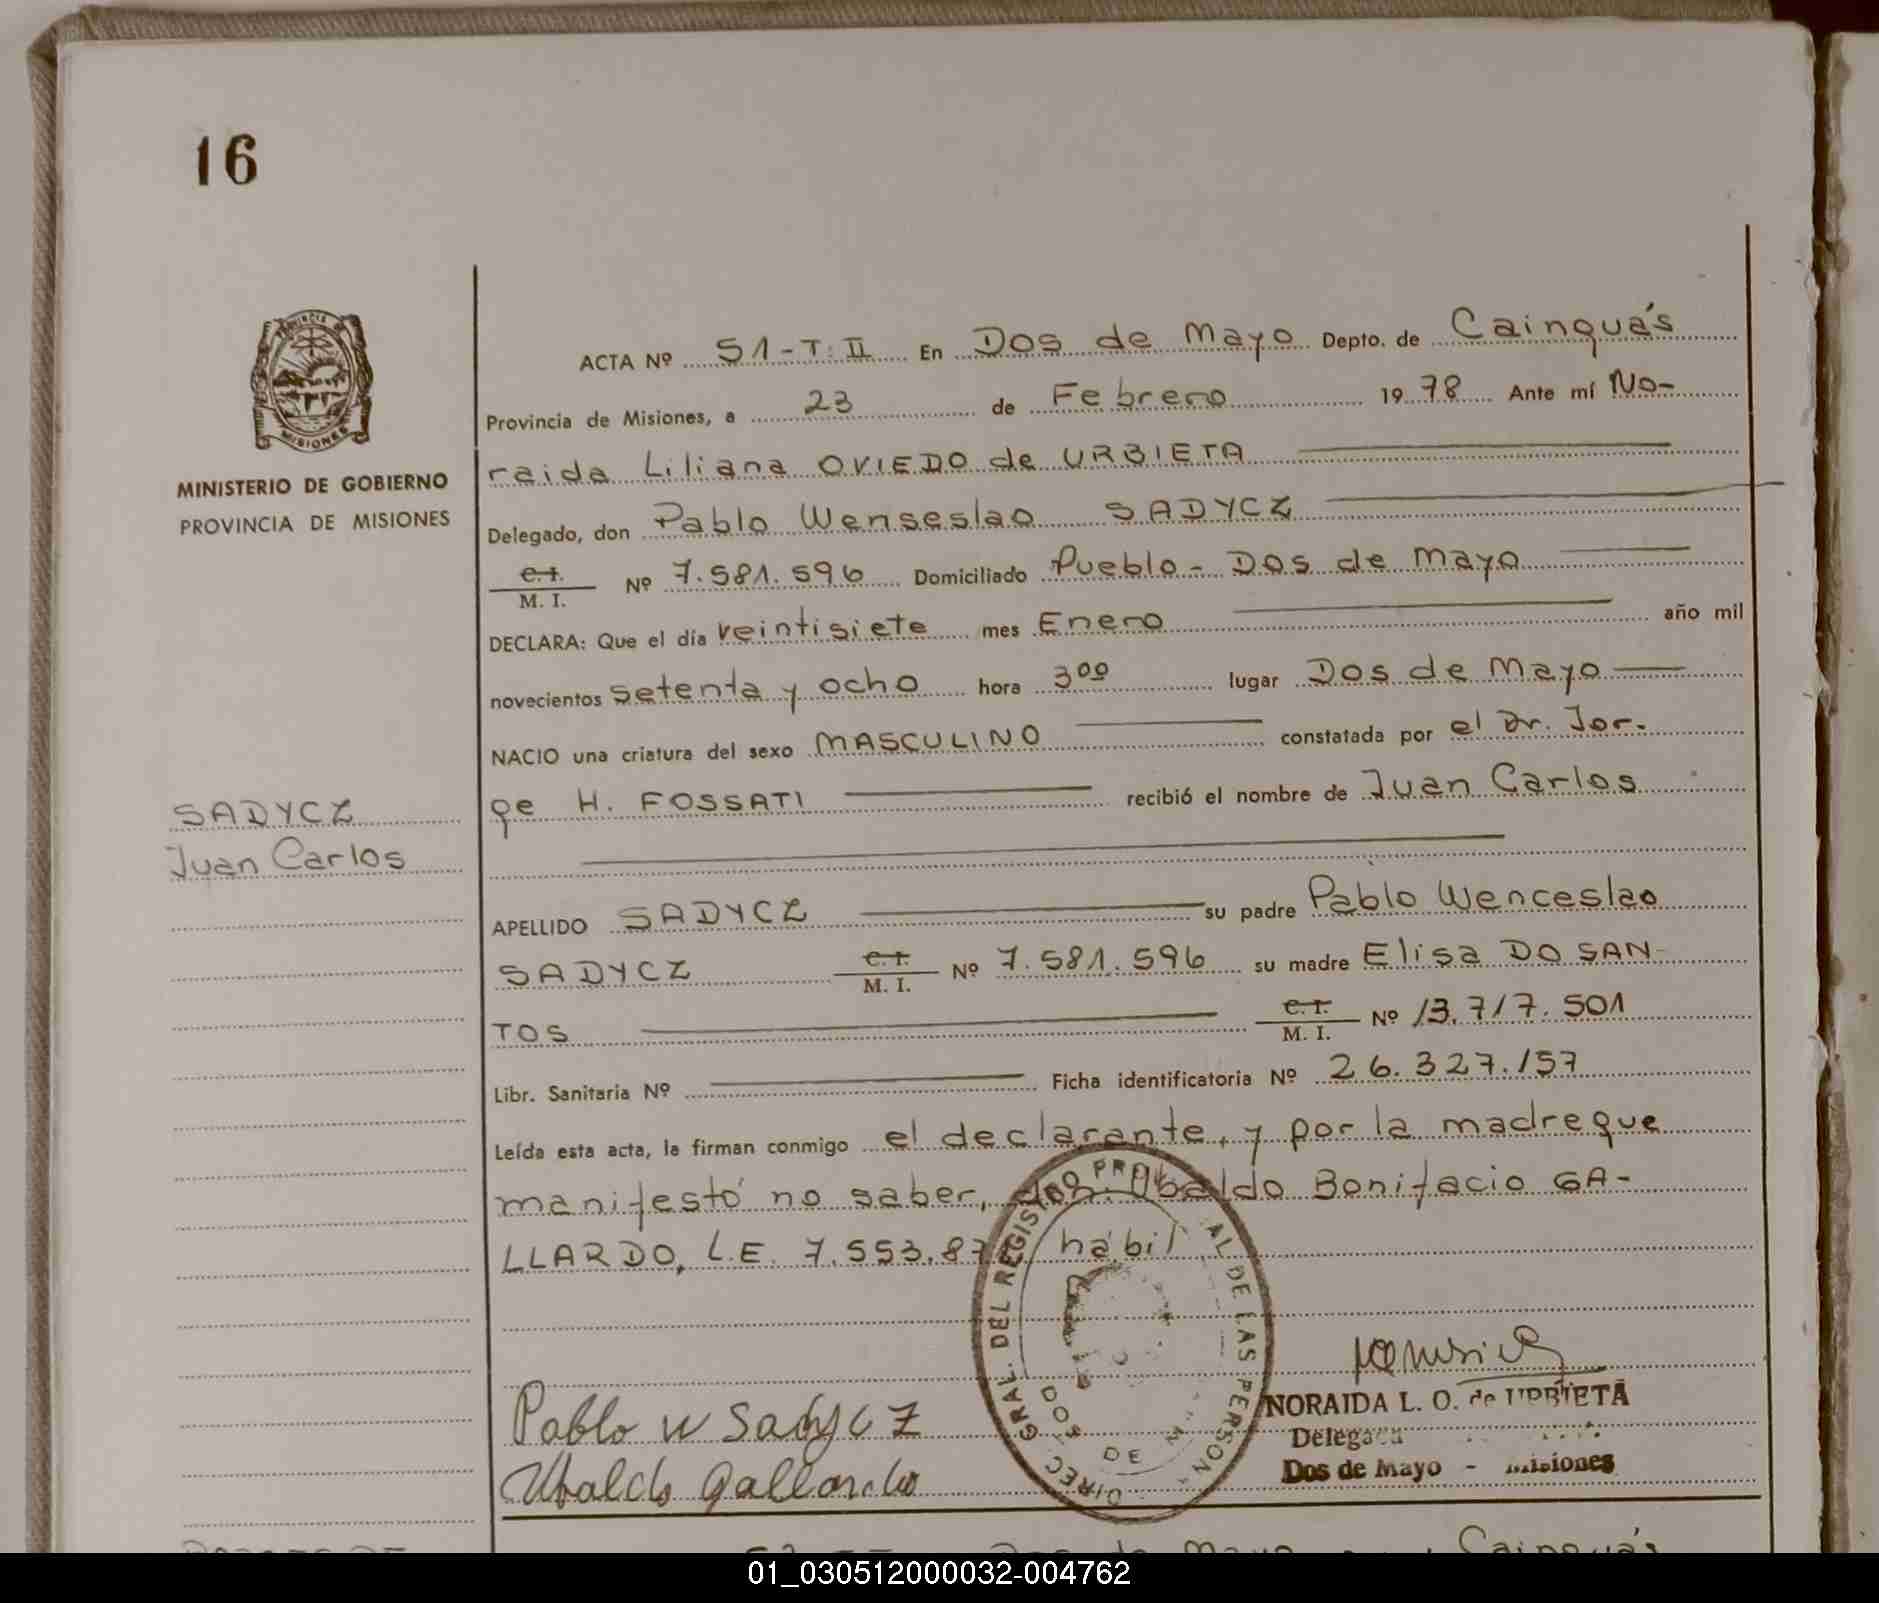 16
PROVINCIA DE
MISIONES
MINISTERIO DE GOBIERNO
PROVINCIA DE MISIONES
SADYCZ
Juan Carlos
ACTA Nº 51-T.II En Dos de Mayo Depto. de Cainguás
Provincia de Misiones, a 23 de Febrero 1978 Ante mí No-
raida Liliana OVIEDO de URBIETA
Delegado, don Pablo Wenseslao SADYCZ
C.I.
M. I. Nº 7.581.596 Domiciliado Pueblo - Dos de Mayo
DECLARA: Que el día veintisiete mes Enero año mil
novecientos setenta y ocho hora 3⁰⁰ lugar Dos de Mayo
NACIO una criatura del sexo MASCULINO constatada por el Dr. Jor-
ge H. FOSSATI recibió el nombre de Juan Carlos
APELLIDO SADYCZ su padre Pablo Wenceslao
SADYCZ C.I.
M. I. Nº 7.581.596 su madre Elisa DO SAN-
TOS C.I.
M. I. Nº 13.717.501
Libr. Sanitaria Nº Ficha identificatoria Nº 26.327.157
Leída esta acta, la firman conmigo el declarante, y por la madre que
manifestó no saber, don Ubaldo Bonifacio GA-
LLARDO, L.E. 7.553.87 hábil
Pablo W Sadycz
Ubaldo Gallardo
DIREC. GRAL. DEL REGISTRO PR AL DE LAS PERSON
DOS DE
NORAIDA L. O. de URBIETA
Delegada
Dos de Mayo - Misiones
Dos de Mayo Cainguás
01_030512000032-004762